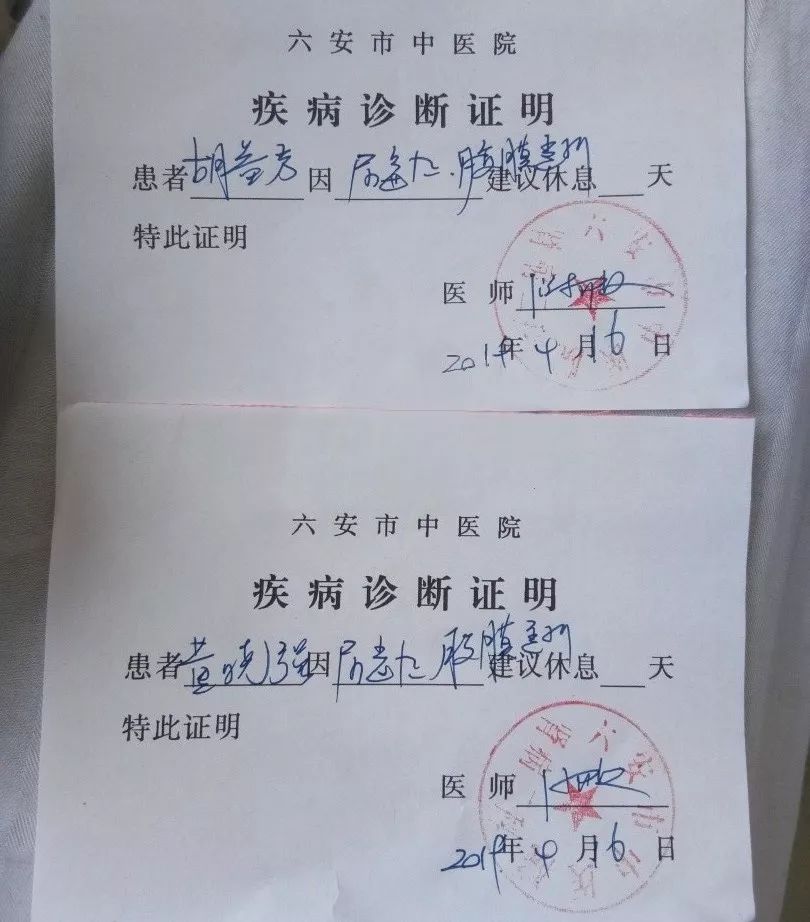 六安市中医院
疾病诊断证明
患者胡 因尿毒症 腹膜透析建议休息 天
特此证明
医师
2019年4月16日
六安市中医院
疾病诊断证明
患者黄晓强因尿毒症 腹膜透析建议休息 天
特此证明
医师
2019年4月16日